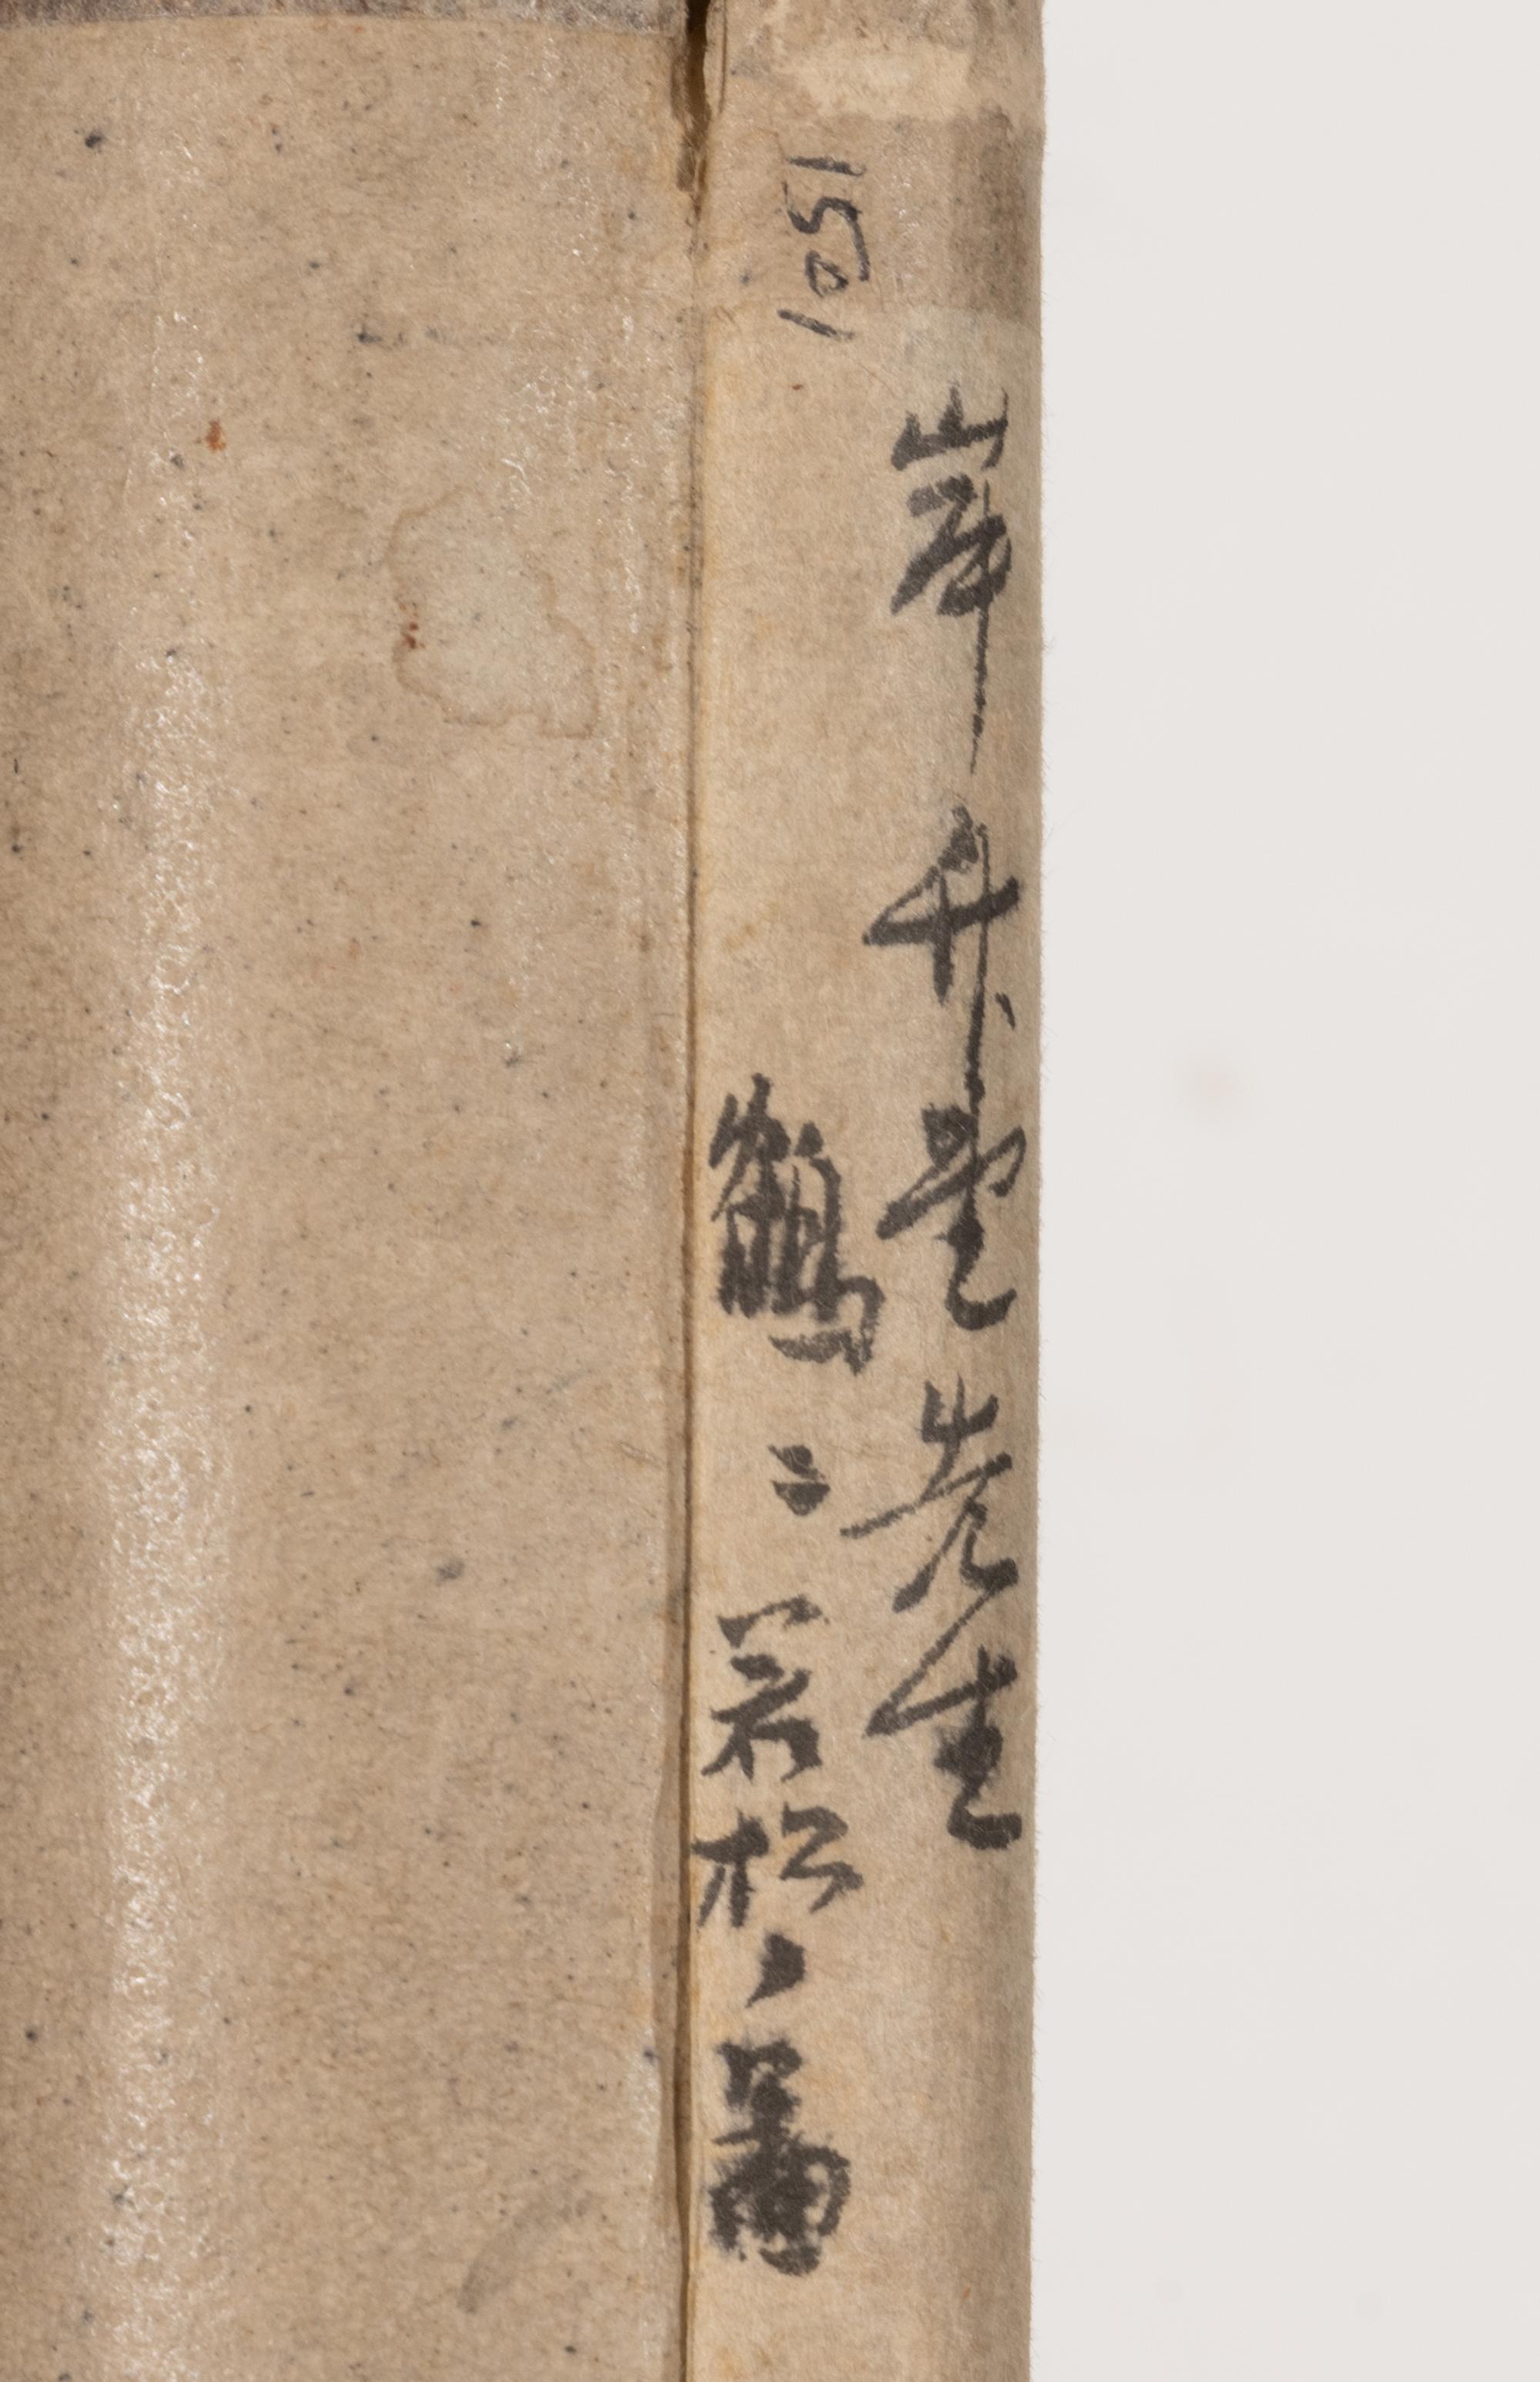 1051
岸竹堂先生
鶴ニ若松ノ畵